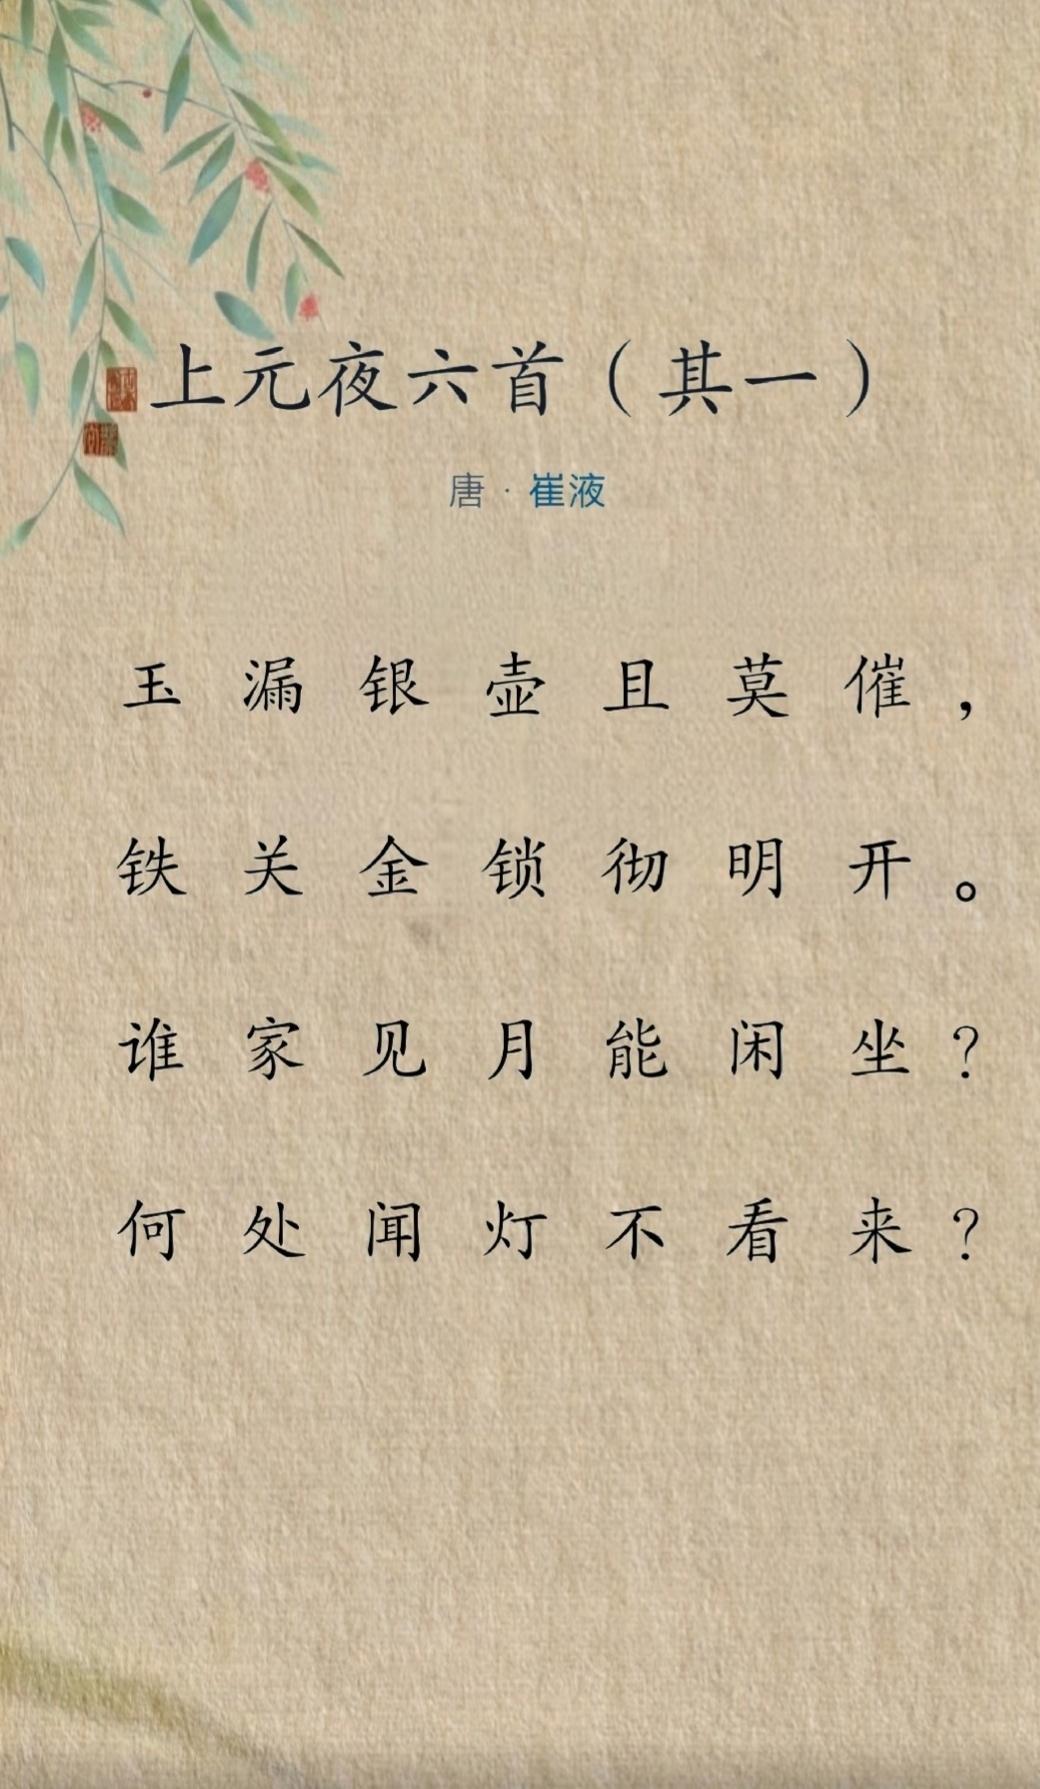 上元夜六首（其一）
唐·崔液
玉漏银壶且莫催，
铁关金锁彻明开。
谁家见月能闲坐？
何处闻灯不看来？